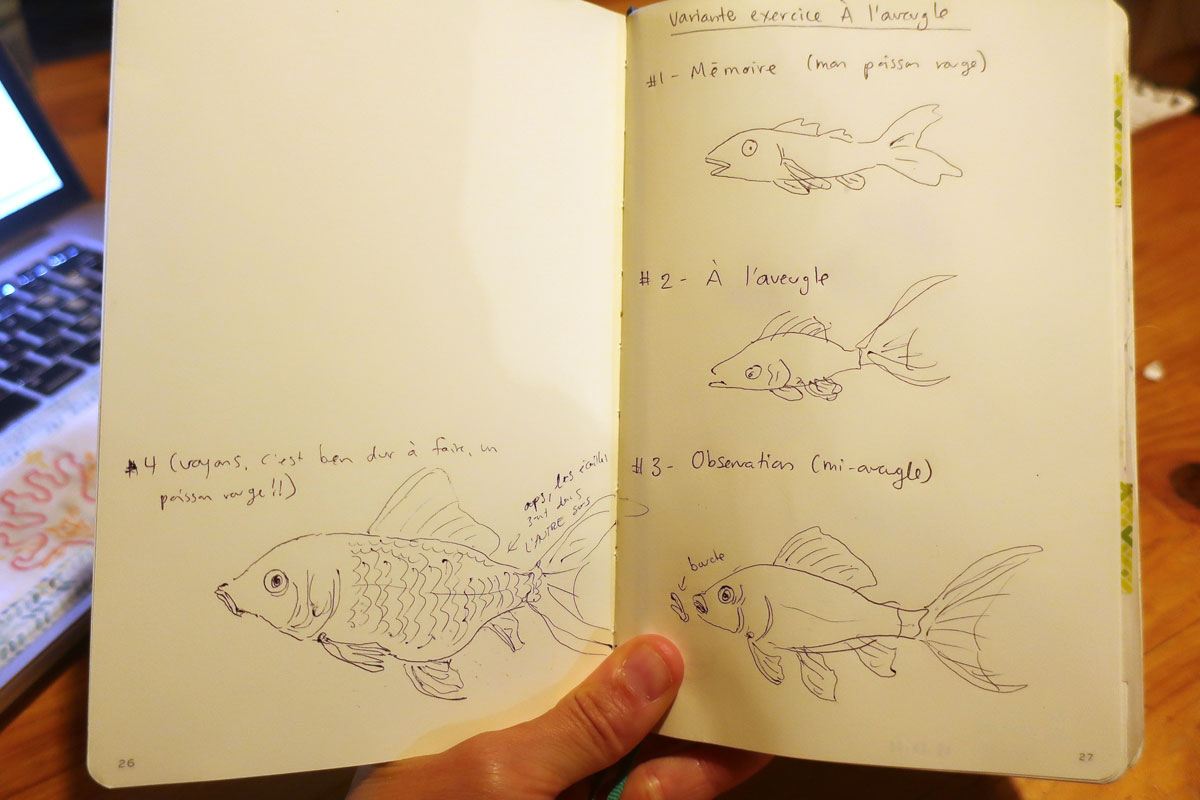 #4 (voyons, c'est ben dur à faire, un
poisson rouge!!)
oups, les écailles
sont dans
L'AUTRE sens
26
Variante exercice À l'aveugle
#1 - Mémoire (mon poisson rouge)
#2 - À l'aveugle
#3 - Observation (mi-aveugle)
bouche
27